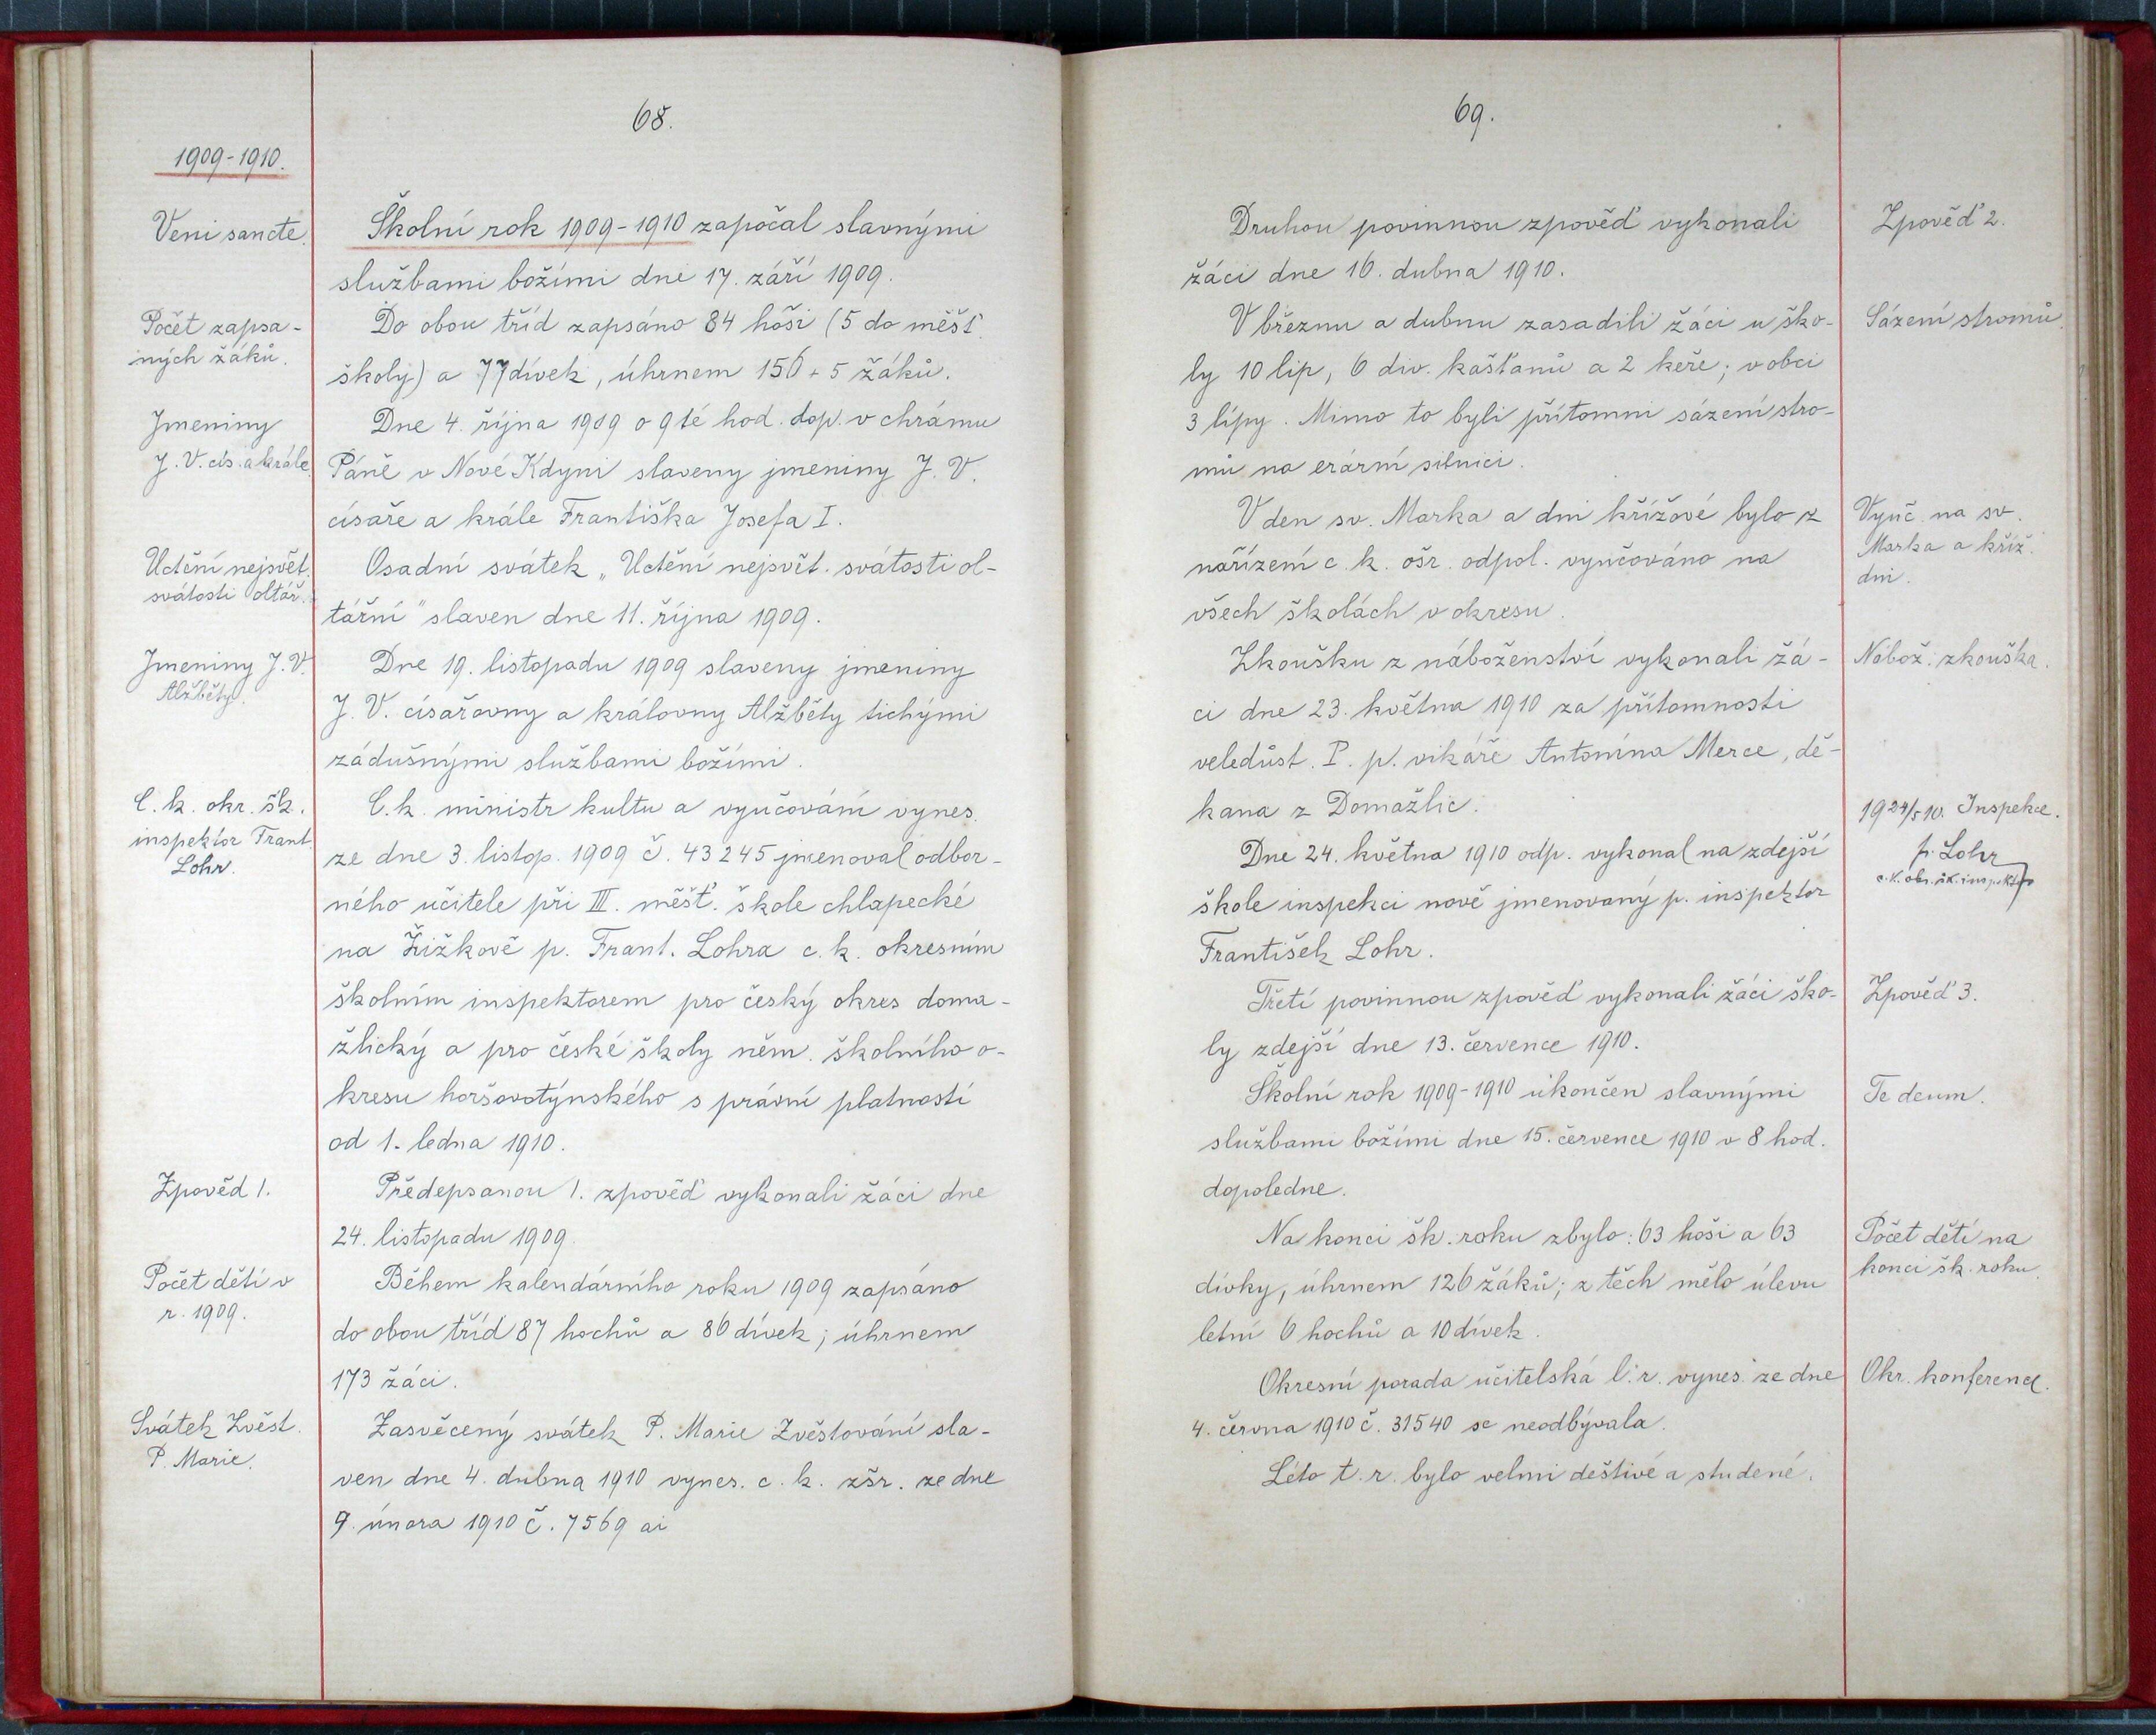 68.
1909-1910.
Veni sancte.
Školní rok 1909-1910 započal slavnými
službami božími dne 17. září 1909.
Počet zapsa-
ných žáků.
Do obou tříd zapsáno 84 hoši (5 do měšť.
školy) a 77 dívek, úhrnem 156 + 5 žáků.
Jmeniny
J. V. cís. a krále
Dne 4. října 1909 o 9té hod. dop. v chrámu
Páně v Nové Kdyni slaveny jmeniny J. V.
císaře a krále Františka Josefa I.
Uctění nejsvět.
svátosti oltář.
Osadní svátek „Uctění nejsvět. svátosti ol-
tářní" slaven dne 11. října 1909.
Jmeniny J. V.
Alžběty.
Dne 19. listopadu 1909 slaveny jmeniny
J. V. císařovny a královny Alžběty tichými
zádušnými službami božími.
C. k. okr. šk.
inspektor Frant.
Lohr.
C. k. ministr kultu a vyučování vynes.
ze dne 3. listop. 1909 č. 43245 jmenoval odbor-
ného učitele při III. měšť. škole chlapecké
na Žižkově p. Frant. Lohra c. k. okresním
školním inspektorem pro český okres doma-
žlický a pro české školy něm. školního o-
kresu horšovotýnského s právní platností
od 1. ledna 1910.
Zpověd 1.
Předepsanou 1. zpověď vykonali žáci dne
24. listopadu 1909.
Počet dětí v
r. 1909.
Během kalendárního roku 1909 zapsáno
do obou tříd 87 hochů a 86 dívek; úhrnem
173 žáci.
Svátek Zvěst.
P. Marie.
Zasvěcený svátek P. Marie Zvěstování sla-
ven dne 4. dubna 1910 vynes. c. k. zšr. ze dne
9. února 1910 č. 7569 ai
69.
Druhou povinnou zpověď vykonali
žáci dne 16. dubna 1910.
Zpověď 2.
V březnu a dubnu zasadili žáci u ško-
ly 10 lip, 6 div. kaštanů a 2 keře; v obci
3 lípy. Mimo to byli přítomni sázení stro-
mů na erární silnici.
Sázení stromů.
V den sv. Marka a dni křížové bylo z
nařízení c. k. ošr. odpol. vyučováno na
všech školách v okresu.
Vyuč. na sv.
Marka a kříž.
dni.
Zkoušku z náboženství vykonali žá-
ci dne 23. května 1910 za přítomnosti
veledůst. P. p. vikáře Antonína Merce, dě-
kana z Domažlic.
Nábož. zkouška.
Dne 24. května 1910 odp. vykonal na zdejší
škole inspekci nově jmenovaný p. inspektor
František Lohr.
19 24/5 10. Inspekce.
p. Lohr
c. k. okr. šk. inspektor
Třetí povinnou zpověď vykonali žáci ško-
ly zdejší dne 13. července 1910.
Zpověď 3.
Školní rok 1909-1910 ukončen slavnými
službami božími dne 15. července 1910 v 8 hod.
dopoledne.
Te deum.
Na konci šk. roku zbylo: 63 hoši a 63
dívky, úhrnem 126 žáků; z těch mělo úlevu
letní 6 hochů a 10 dívek.
Počet dětí na
konci šk. roku.
Okresní porada učitelská l. r. vynes. ze dne
4. června 1910 č. 31540 se neodbývala.
Okr. konferenc.
Léto t. r. bylo velmi deštivé a studené.